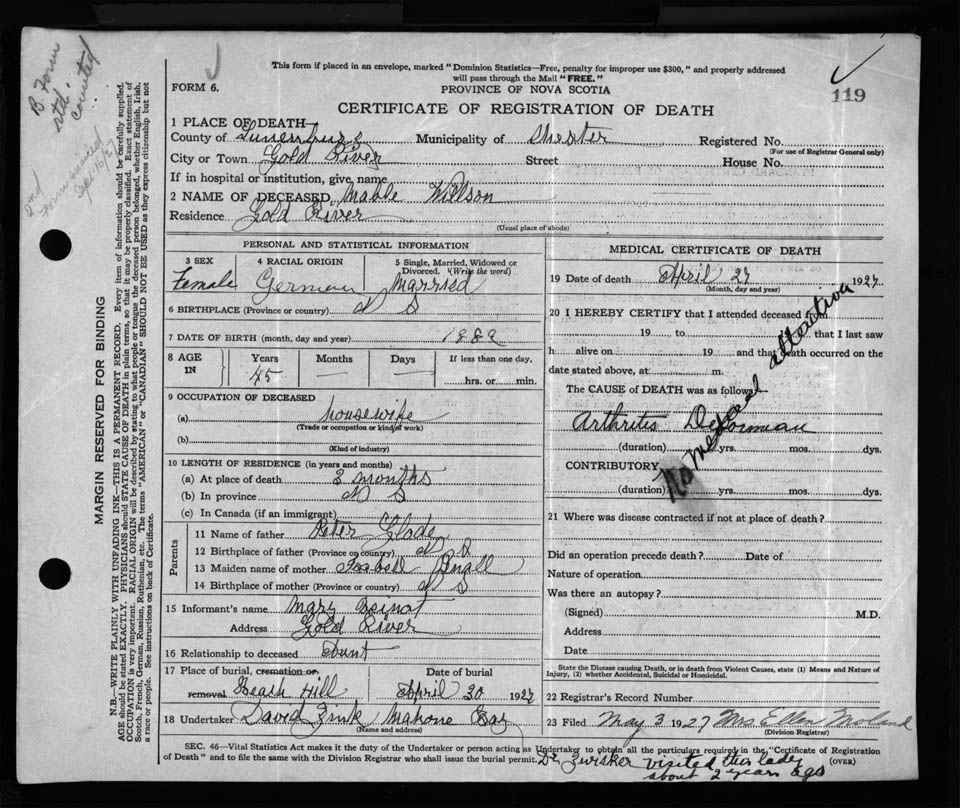 This form if placed in an envelope, marked "Dominion Statistics—Free, penalty for improper use $300," and properly addressed
will pass through the Mail "FREE."
FORM 6.
PROVINCE OF NOVA SCOTIA
119
CERTIFICATE OF REGISTRATION OF DEATH
B. Form
std.
counted
2nd
Form
Sept 16/27
MARGIN RESERVED FOR BINDING
N.B.—WRITE PLAINLY WITH UNFADING INK—THIS IS A PERMANENT RECORD. Every item of information should be carefully supplied.
AGE should be stated EXACTLY. PHYSICIANS should STATE CAUSE OF DEATH in plain terms, so that it may be properly classified. Exact statement of
OCCUPATION is very important. RACIAL ORIGIN will be described by stating to what people or tongue the deceased person belonged, whether English, Irish,
Scotch, French, German, Russian, Ruthenian, etc. The terms "AMERICAN" or "CANADIAN" SHOULD NOT BE USED as they express citizenship but not
a race or people. See instructions on back of Certificate.
1 PLACE OF DEATH—
County of Lunenburg Municipality of Chester Registered No.
(For use of Registrar General only)
City or Town Gold River Street House No.
If in hospital or institution, give name
2 NAME OF DECEASED Mable Willson
Residence Gold River
(Usual place of abode)
PERSONAL AND STATISTICAL INFORMATION
3 SEX 4 RACIAL ORIGIN 5 Single, Married, Widowed or Divorced. (Write the word)
Female German Married
6 BIRTHPLACE (Province or country) N S
7 DATE OF BIRTH (month, day and year) 1882
8 AGE IN Years Months Days If less than one day,
45 — — hrs. or min.
9 OCCUPATION OF DECEASED
(a) housewife
(Trade or occupation or kind of work)
(b)
(Kind of industry)
10 LENGTH OF RESIDENCE (in years and months)
(a) At place of death 3 months
(b) In province N S
(c) In Canada (if an immigrant)
Parents
11 Name of father Peter Slade
12 Birthplace of father (Province or country) N S
13 Maiden name of mother
14 Birthplace of mother (Province or country) N S
15 Informant's name Mary
Address Gold River
16 Relationship to deceased Aunt
17 Place of burial, cremation or removal Heath Hill Date of burial April 30 1927
18 Undertaker David Zink Mahone Bay
(Name and address)
MEDICAL CERTIFICATE OF DEATH
19 Date of death April 27 1927
(Month, day and year)
20 I HEREBY CERTIFY that I attended deceased from
19 to that I last saw
h alive on 19 and that death occurred on the
date stated above, at m.
The CAUSE of DEATH was as follows
Arthritis
(duration) yrs. mos. dys.
CONTRIBUTORY
(duration) yrs. mos. dys.
No medical attention
21 Where was disease contracted if not at place of death?
Did an operation precede death? Date of
Nature of operation
Was there an autopsy?
(Signed) M.D.
Address
Date
State the Disease causing Death, or in death from Violent Causes, state (1) Means and Nature of
Injury, (2) whether Accidental, Suicidal or Homicidal.
22 Registrar's Record Number
23 Filed May 3 1927 Mrs Ellen Moland
(Division Registrar)
SEC. 46—Vital Statistics Act makes it the duty of the Undertaker or person acting as Undertaker to obtain all the particulars required in the "Certificate of Registration
of Death" and to file the same with the Division Registrar who shall issue the burial permit. (OVER)
Dr. Zwicker visited this lady
about 2 years ago